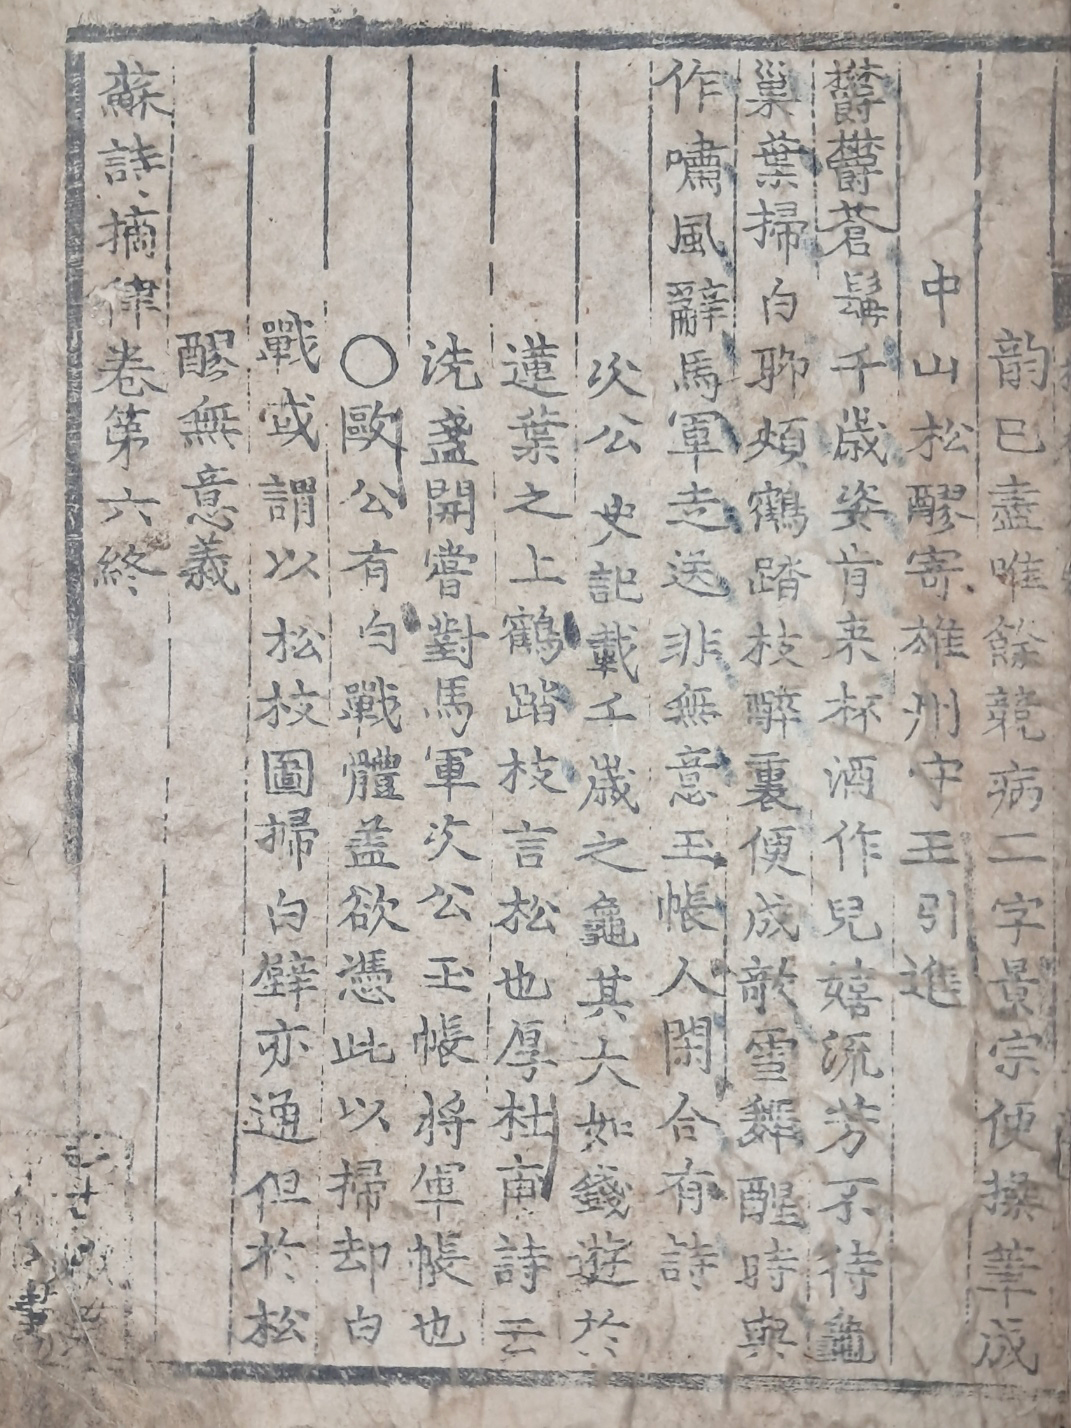 韵已盡唯餘競病二字景宗便操筆成
中山松醪寄雄州守王引進
欝欝蒼髯千歲姿肯来杯酒作兒嬉流芳不待龜
巢葉掃白聊煩鶴踏枝醉裏便成欹雪舞醒時與
作嘯風辭馬軍走送非無意玉帳人閑合有詩
次公史記載千歲之龜其大如錢遊於
蓮葉之上鶴踏枝言松也厚杜甫詩云
洗盞開嘗對馬軍次公玉帳将軍帳也
○歐公有白戰體盖欲憑此以掃却白
戰或謂以松枝圖掃白壁亦通但於松
醪無意義
蘇詩摘律卷第六終